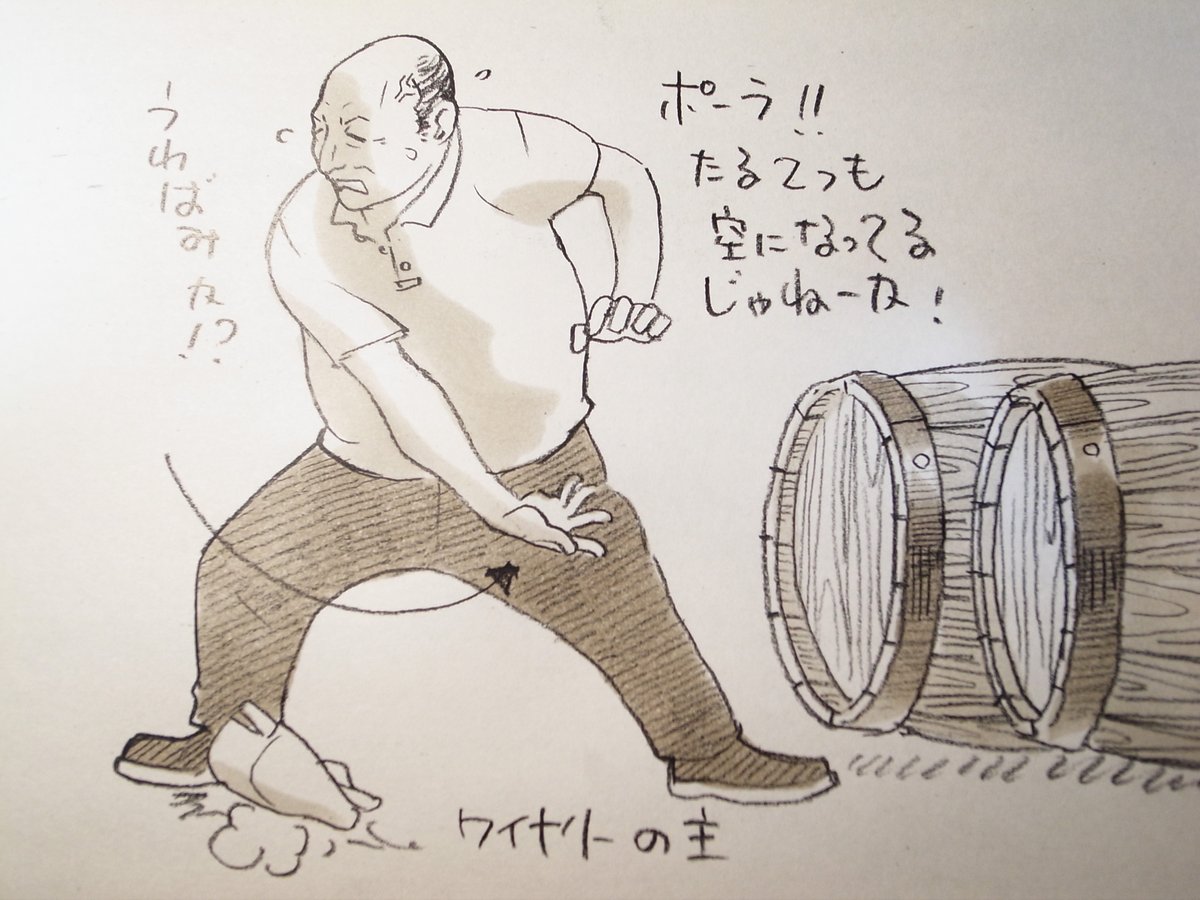 ポーラ!!
たる2つも
空になってる
じゃねーか!
うわばみか!?
ワイナリーの主